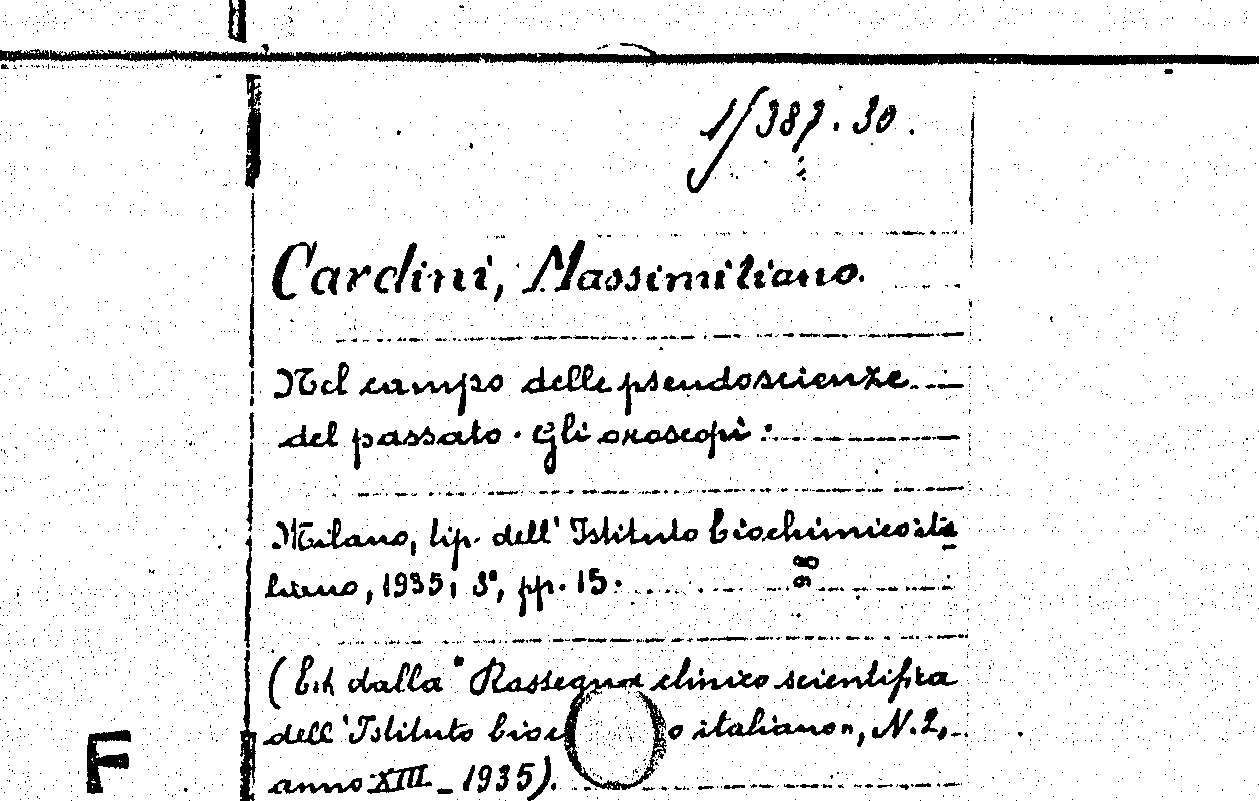 1/387.30.
Cardini, Massimiliano.
Nel campo delle pseudoscienze
del passato. Gli oroscopi.
Milano, tip. dell'Istituto biochimico ita
liano, 1935, 8°, pp. 15.
98
(Est. dalla "Rassegna clinico scientifica
dell'Istituto bioc o italiano", N. 2,
anno XIII - 1935).
F